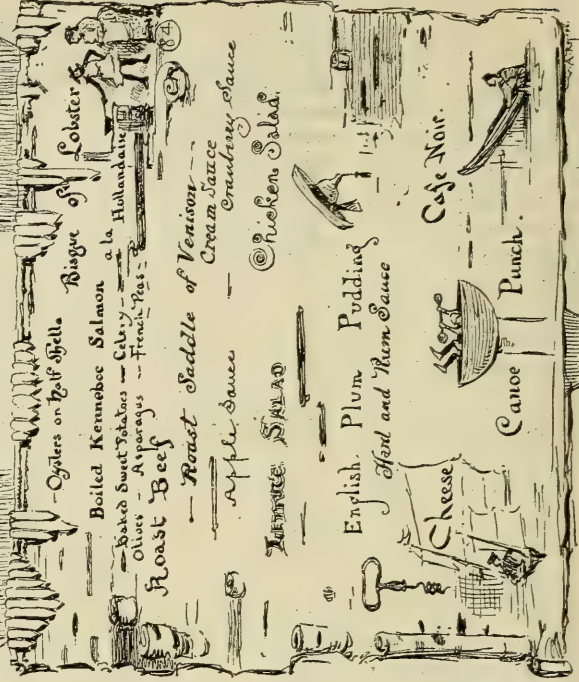 - Oysters on Half Shells
Bisque of Lobster
Boiled Kennebec Salmon a la Hollandaise
- Baked Sweet Potatoes - Celery -
Olives - Asparagus - French Peas -
Roast Beef
- Roast Saddle of Venison -
Cream Sauce
Apple Sauce - Cranberry Sauce
Lettuce Salad Chicken Salad.
English Plum Pudding
Hard and Rum Sauce
Cheese Cafe Noir.
Canoe Punch.
84